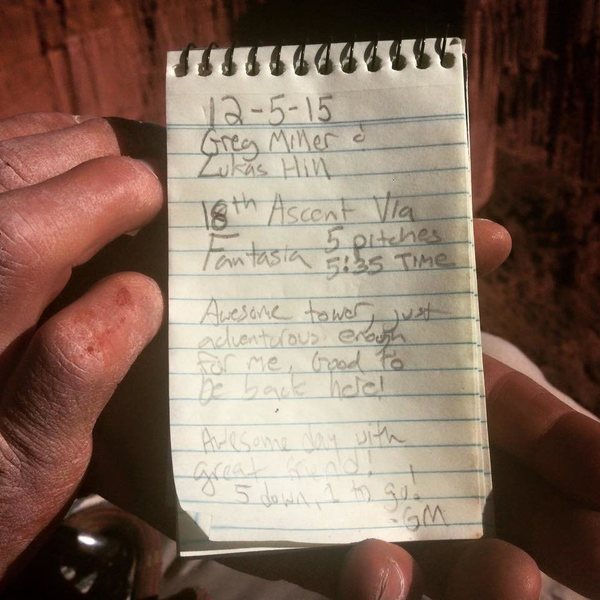 12-5-15
Greg Miller &
Lukas Hill
18th Ascent Via
Fantasia 5 pitches
5:35 TIME
Awesome tower, just
adventurous enough
for me, Good to
be back here!
Awesome day with
great friend!
5 down, 1 to go!
-GM